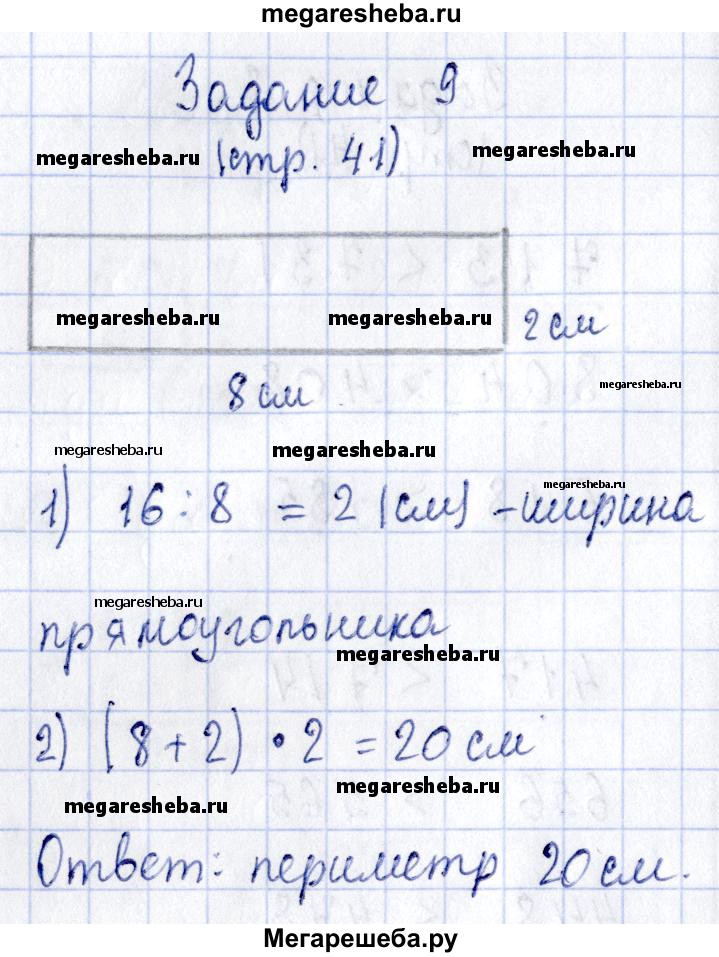 megaresheba.ru
Задание 9
megaresheba.ru (стр. 41) megaresheba.ru
megaresheba.ru megaresheba.ru 2 см
8 см megaresheba.ru
megaresheba.ru megaresheba.ru
megaresheba.ru
1) 16 : 8 = 2 (см) - ширина
megaresheba.ru
прямоугольника
megaresheba.ru
2) (8 + 2) • 2 = 20 см
megaresheba.ru megaresheba.ru
Ответ: периметр 20 см.
Мегарешеба.ру